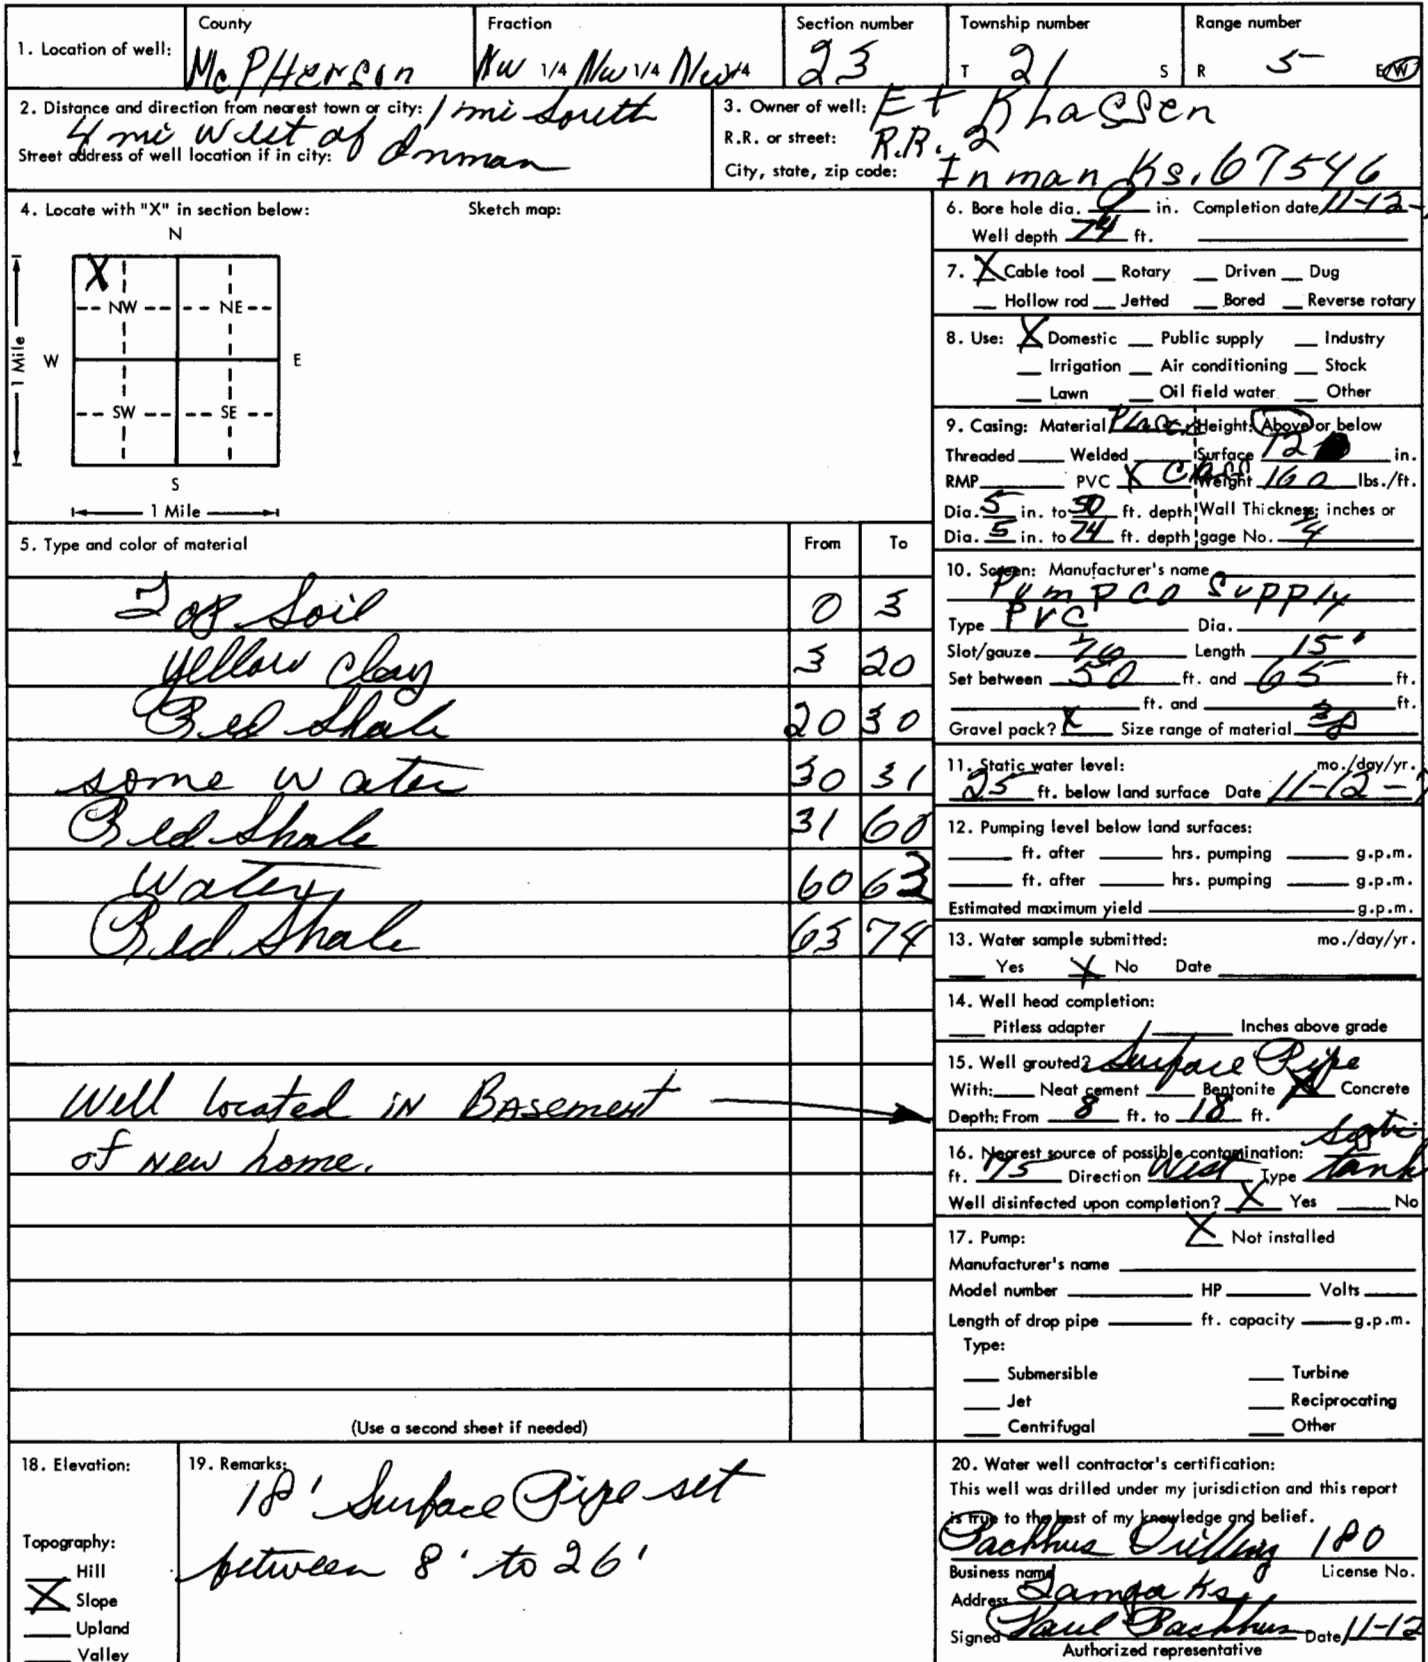 1. Location of well:
County
McPHerson
Fraction
NW 1/4 NW 1/4 NW 1/4
Section number
23
Township number
T 21 S
Range number
R 5 E W
2. Distance and direction from nearest town or city: 1 mi South
4 mi West of Inman
Street address of well location if in city:
3. Owner of well: Klassen
R.R. or street: R.R. 2
City, state, zip code: Inman Ks. 67546
4. Locate with "X" in section below:
Sketch map:
N
X
NW NE
1 Mile
W E
SW SE
S
1 Mile
5. Type and color of material From To
Top Soil 0 3
Yellow Clay 3 20
Red Shale 20 30
some water 30 31
Red Shale 31 60
Water 60 63
Red Shale 63 74
Well located in Basement
of New home.
(Use a second sheet if needed)
6. Bore hole dia. 9 in. Completion date 11-12-
Well depth 74 ft.
7. X Cable tool __ Rotary __ Driven __ Dug
__ Hollow rod __ Jetted __ Bored __ Reverse rotary
8. Use: X Domestic __ Public supply __ Industry
__ Irrigation __ Air conditioning __ Stock
__ Lawn __ Oil field water __ Other
9. Casing: Material Height: Above or below
Threaded __ Welded __ Surface 12 in.
RMP __ PVC X Class Weight 160 lbs./ft.
Dia. 5 in. to 50 ft. depth Wall Thickness: inches or
Dia. 5 in. to 74 ft. depth gage No. 1/4
10. Screen: Manufacturer's name
Pumpco Supply
Type PVC Dia.
Slot/gauze 1/16 Length 15'
Set between 50 ft. and 65 ft.
ft. and ft.
Gravel pack? X Size range of material 3/8
11. Static water level: mo./day/yr.
25 ft. below land surface Date 11-12-
12. Pumping level below land surfaces:
__ ft. after __ hrs. pumping __ g.p.m.
__ ft. after __ hrs. pumping __ g.p.m.
Estimated maximum yield __ g.p.m.
13. Water sample submitted: mo./day/yr.
__ Yes X No Date
14. Well head completion:
__ Pitless adapter Inches above grade
15. Well grouted? Surface Pipe
With: __ Neat cement __ Bentonite X Concrete
Depth: From 8 ft. to 18 ft.
16. Nearest source of possible contamination: Septic
ft. 75 Direction West Type tank
Well disinfected upon completion? X Yes __ No
17. Pump: X Not installed
Manufacturer's name
Model number HP Volts
Length of drop pipe ft. capacity g.p.m.
Type:
__ Submersible __ Turbine
__ Jet __ Reciprocating
__ Centrifugal __ Other
18. Elevation:
Topography:
__ Hill
X Slope
__ Upland
__ Valley
19. Remarks:
18' Surface Pipe set
between 8' to 26'
20. Water well contractor's certification:
This well was drilled under my jurisdiction and this report
is true to the best of my knowledge and belief.
Backhus Drilling 180
Business name License No.
Address Tampa Ks.
Signed Paul Backhus Date 11-12
Authorized representative